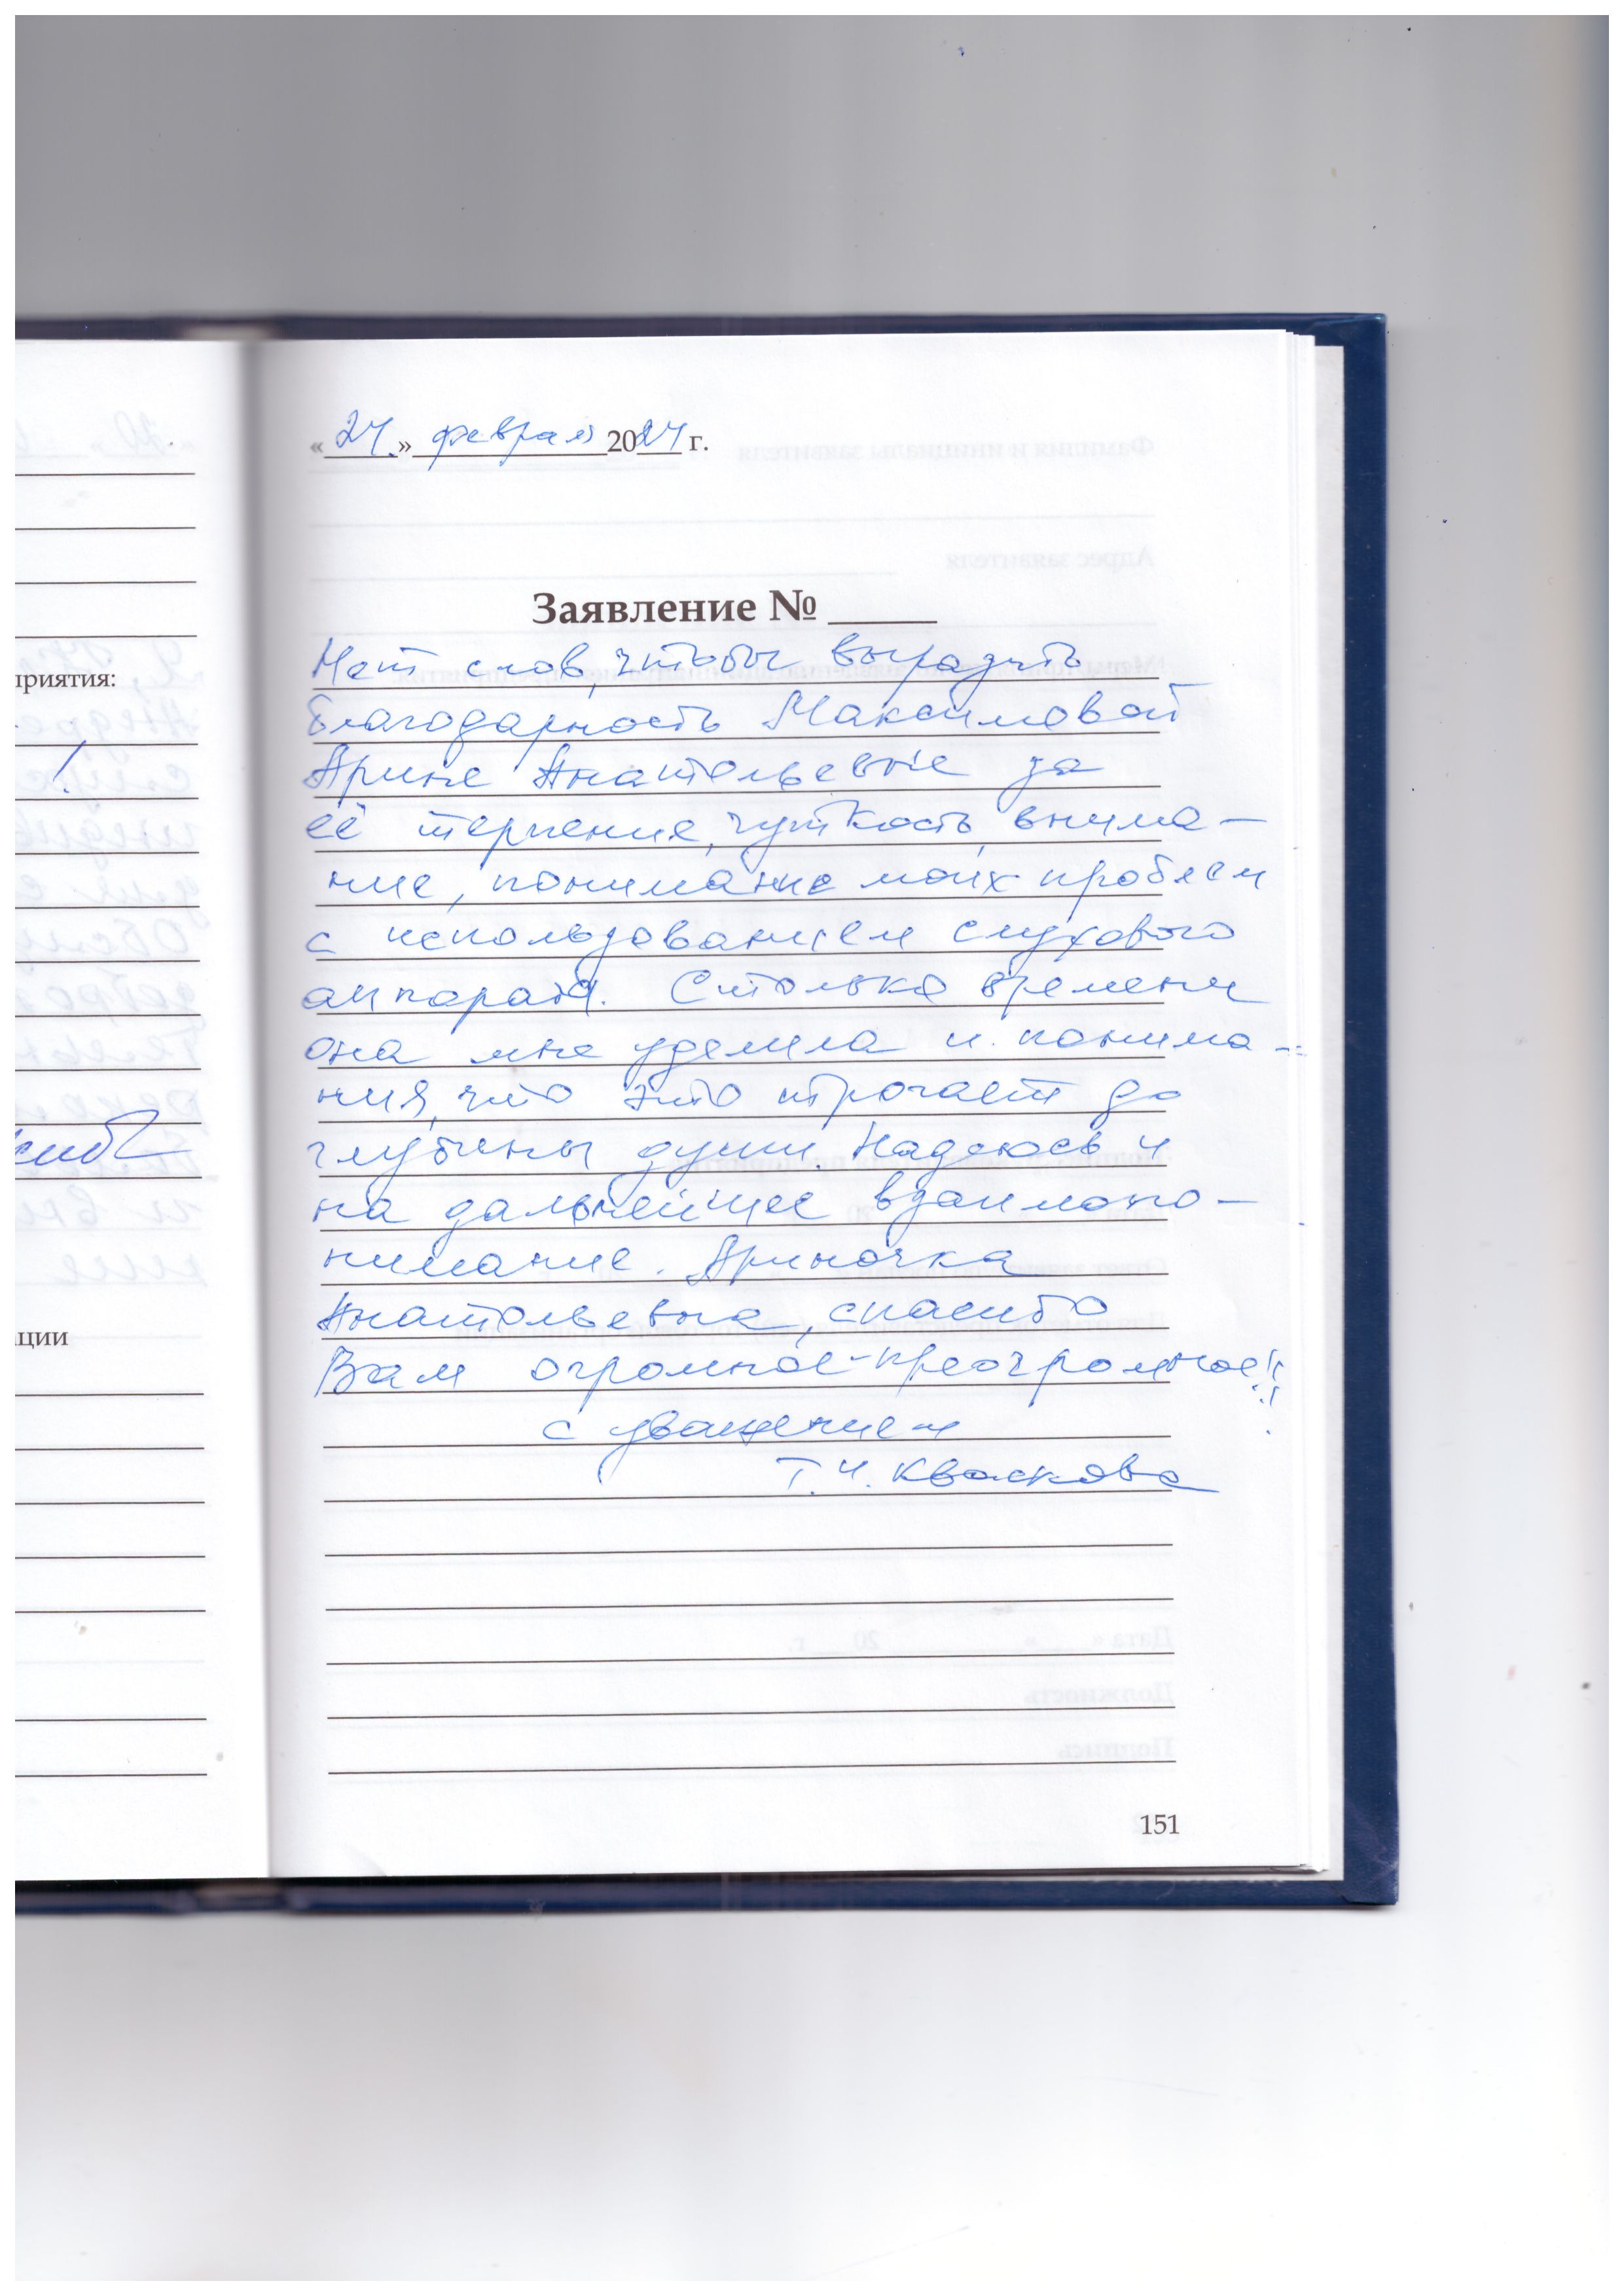 «24.» февраля 2024 г.
Заявление № _____
Нет слов, чтобы выразить
благодарность Максимовой
Арине Анатольевне за
её терпение, чуткость, внима-
ние, понимание моих проблем
с использованием слухового
аппарата. Столько времени
она мне уделила и понима-
ния, что это трогает до
глубины души. Надеюсь и
на дальнейшее взаимопо-
нимание. Ариночка
Анатольевна, спасибо
Вам огромное-преогромное!!!
с уважением
Т.И. Кваскова
151
приятия:
ации